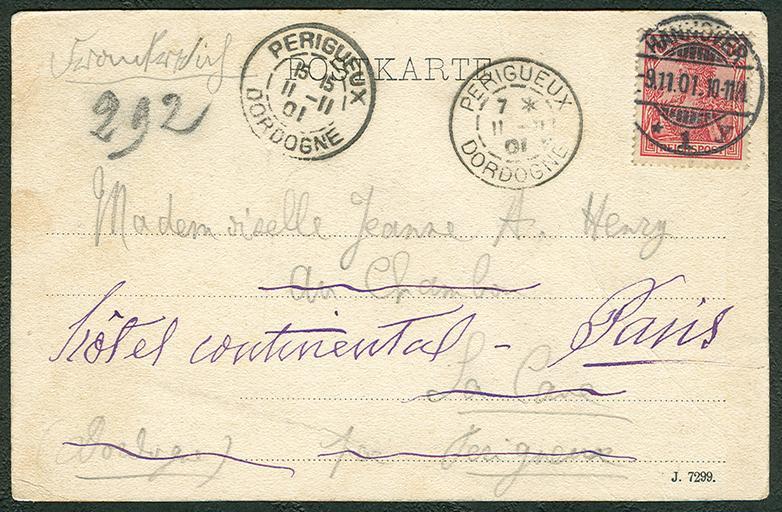 Frankreich
POSTKARTE
292
PERIGUEUX
15 15
11 -11
01
DORDOGNE
PERIGUEUX
7 *
11 -11
01
DORDOGNE
HANNOVER
9.11.01. 10-11
* 1 A
REICHSPOST
Mademoiselle Jeanne A. Henry
au Chambon
hôtel continental - Paris
La Cave
(Dordogne) par Perigueux
J. 7299.